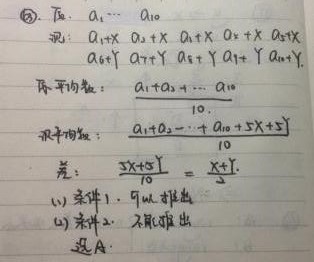 ⑬. 原. a₁ ··· a₁₀
现: a₁+X a₂+X a₃+X a₄+X a₅+X
a₆+Y a₇+Y a₈+Y a₉+Y a₁₀+Y.
原平均数: a₁+a₂+··· a₁₀ / 10.
现平均数: a₁+a₂-··+a₁₀+5X+5Y / 10
差: 5X+5Y / 10 = X+Y / 2.
(1) 条件1. 可以推出
(2) 条件2. 不能推出
选A.